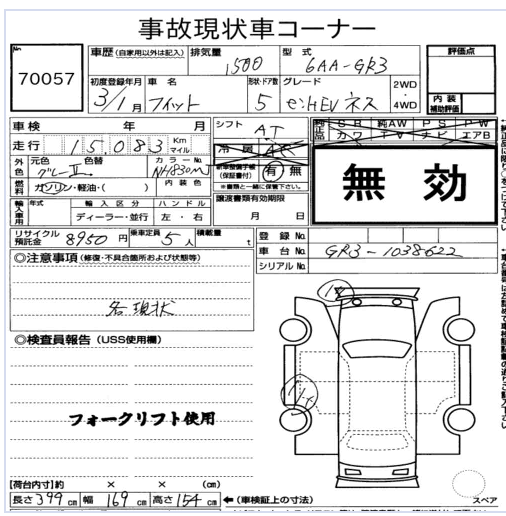 事故現状車コーナー
70057
車歴 (自家用以外は記入) 排気量 1500 型式 6AA-GR3
評価点
初度登録年月 3/1月 車名 フィット 形状・ドア数 5 グレード センHEV ネス 2WD・4WD
内装補助評価
車検 年 月 シフト AT
純正品 SR 純AW PS PW
カワ TV ナビ エアB
走行 15,083 Km マイル
冷房 AC
無効
外色 元色 グレーⅡ 色替 カラーNo. NH830MJ
新車整備手帳(保証書付) 有・無
※書類と一緒に保管下さい。
燃料 ガソリン・軽油・( ) 内装色
輸入車用 年式 輸入区分 ディーラー・並行 ハンドル 左・右
譲渡書類有効期限
月 日
リサイクル預託金 8950円 乗車定員 5人 積載量 t
登録No.
車台No. GR3-1038622
シリアルNo.
◎注意事項 (修復・不具合箇所および状態等)
名現状
◎検査員報告 (USS使用欄)
フォークリフト使用
【荷台内寸】約 × × (cm)
長さ 399 cm 幅 169 cm 高さ 154 cm ←(車検証上の寸法)
スペア